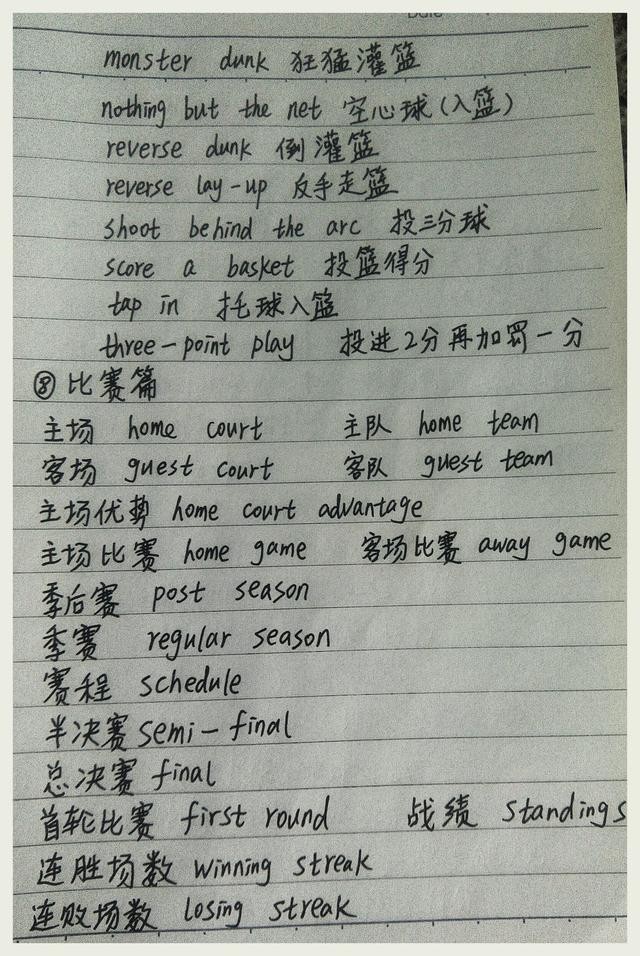 Date
monster dunk 狂猛灌篮
nothing but the net 空心球(入篮)
reverse dunk 倒灌篮
reverse lay-up 反手走篮
shoot behind the arc 投三分球
score a basket 投篮得分
tap in 托球入篮
three-point play 投进2分再加罚一分
⑧ 比赛篇
主场 home court 主队 home team
客场 guest court 客队 guest team
主场优势 home court advantage
主场比赛 home game 客场比赛 away game
季后赛 post season
季赛 regular season
赛程 schedule
半决赛 semi-final
总决赛 final
首轮比赛 first round 战绩 standings
连胜场数 winning streak
连败场数 losing streak